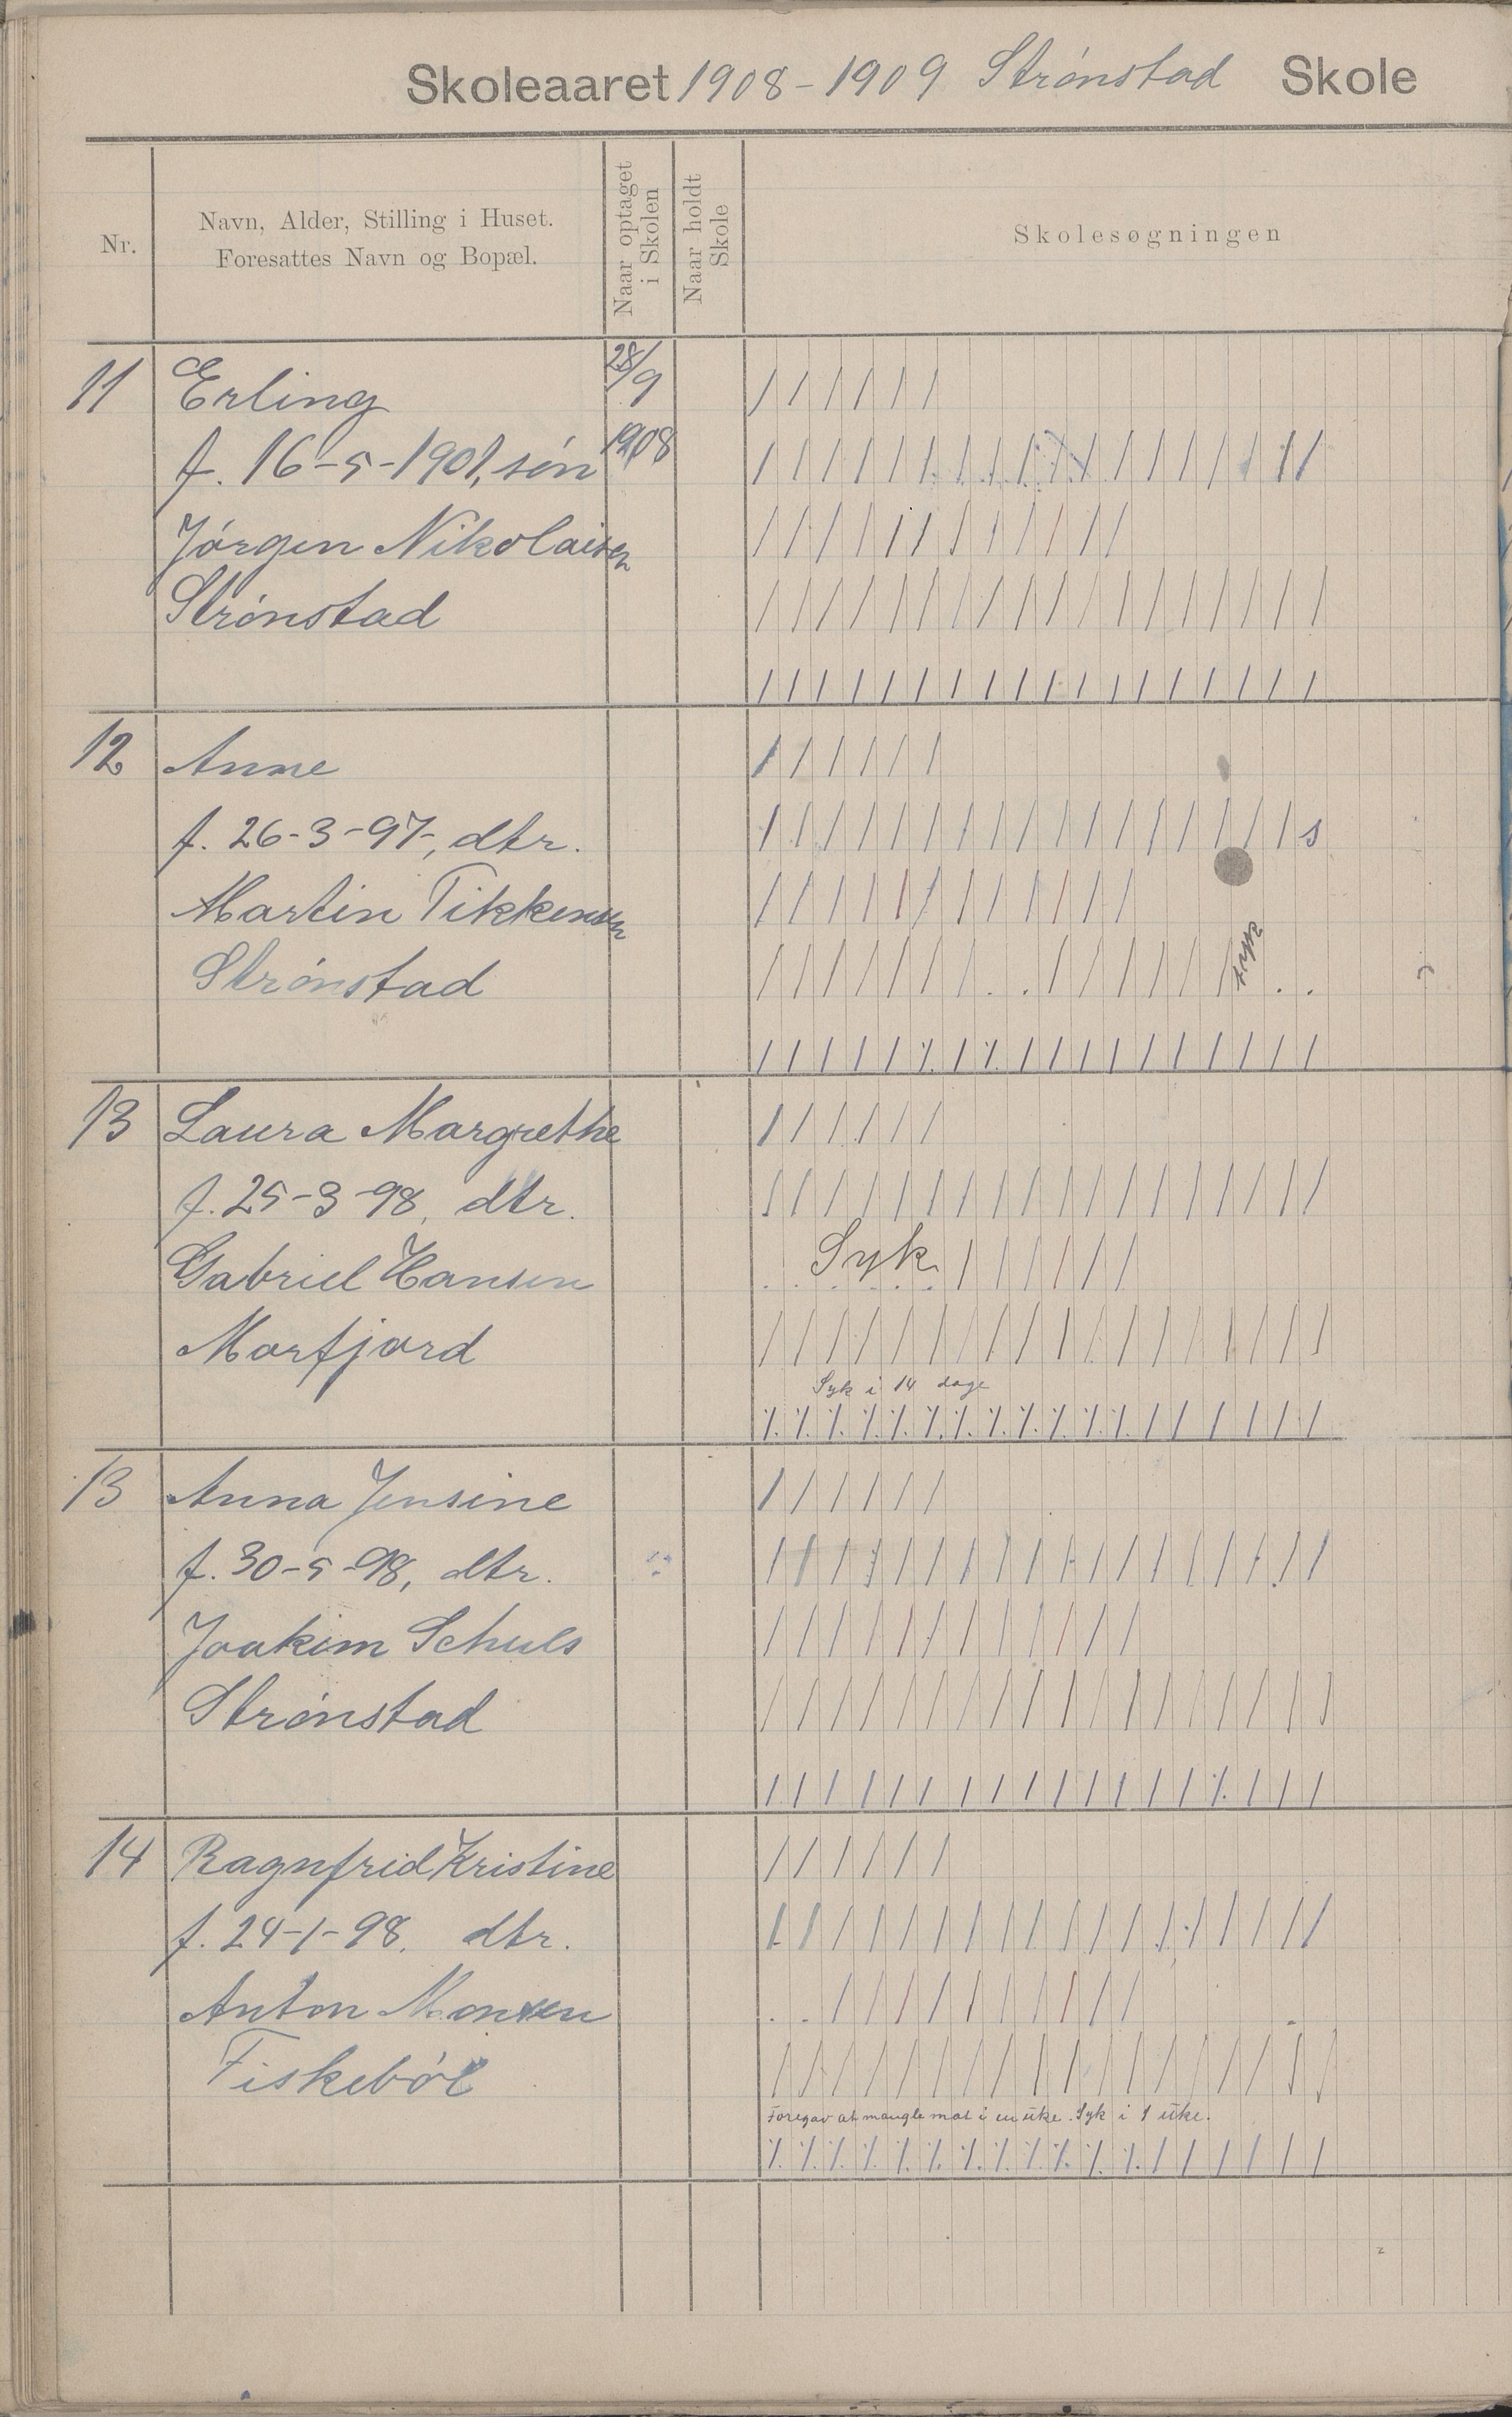 Skoleaaret 1908-1909 Strønstad Skole
Nr.
Navn, Alder, Stilling i Huset.
Foresattes Navn og Bopæl.
Naar optaget
i Skolen
Naar holdt
Skole
Skolesøgningen
11 Erling 28/9
f. 16-5-1901, søn 1908
Jørgen Nikolaisen
Strønstad
12 Anne
f. 26-3-97, dtr. s
Martin Tikkensen
Strønstad
13 Laura Margrethe
f. 25-3-98, dtr.
Gabriel Hansen Syk
Morfjord
Syk i 14 dage
13 Anna Jensine
f. 30-5-98, dtr.
Joakim Schuls
Strønstad
14 Ragnfrid Kristine
f. 24-1-98. dtr.
Anton Monsen
Fiskebøl
Foregav at mangle mat i en uke. Syk i 1 uke.